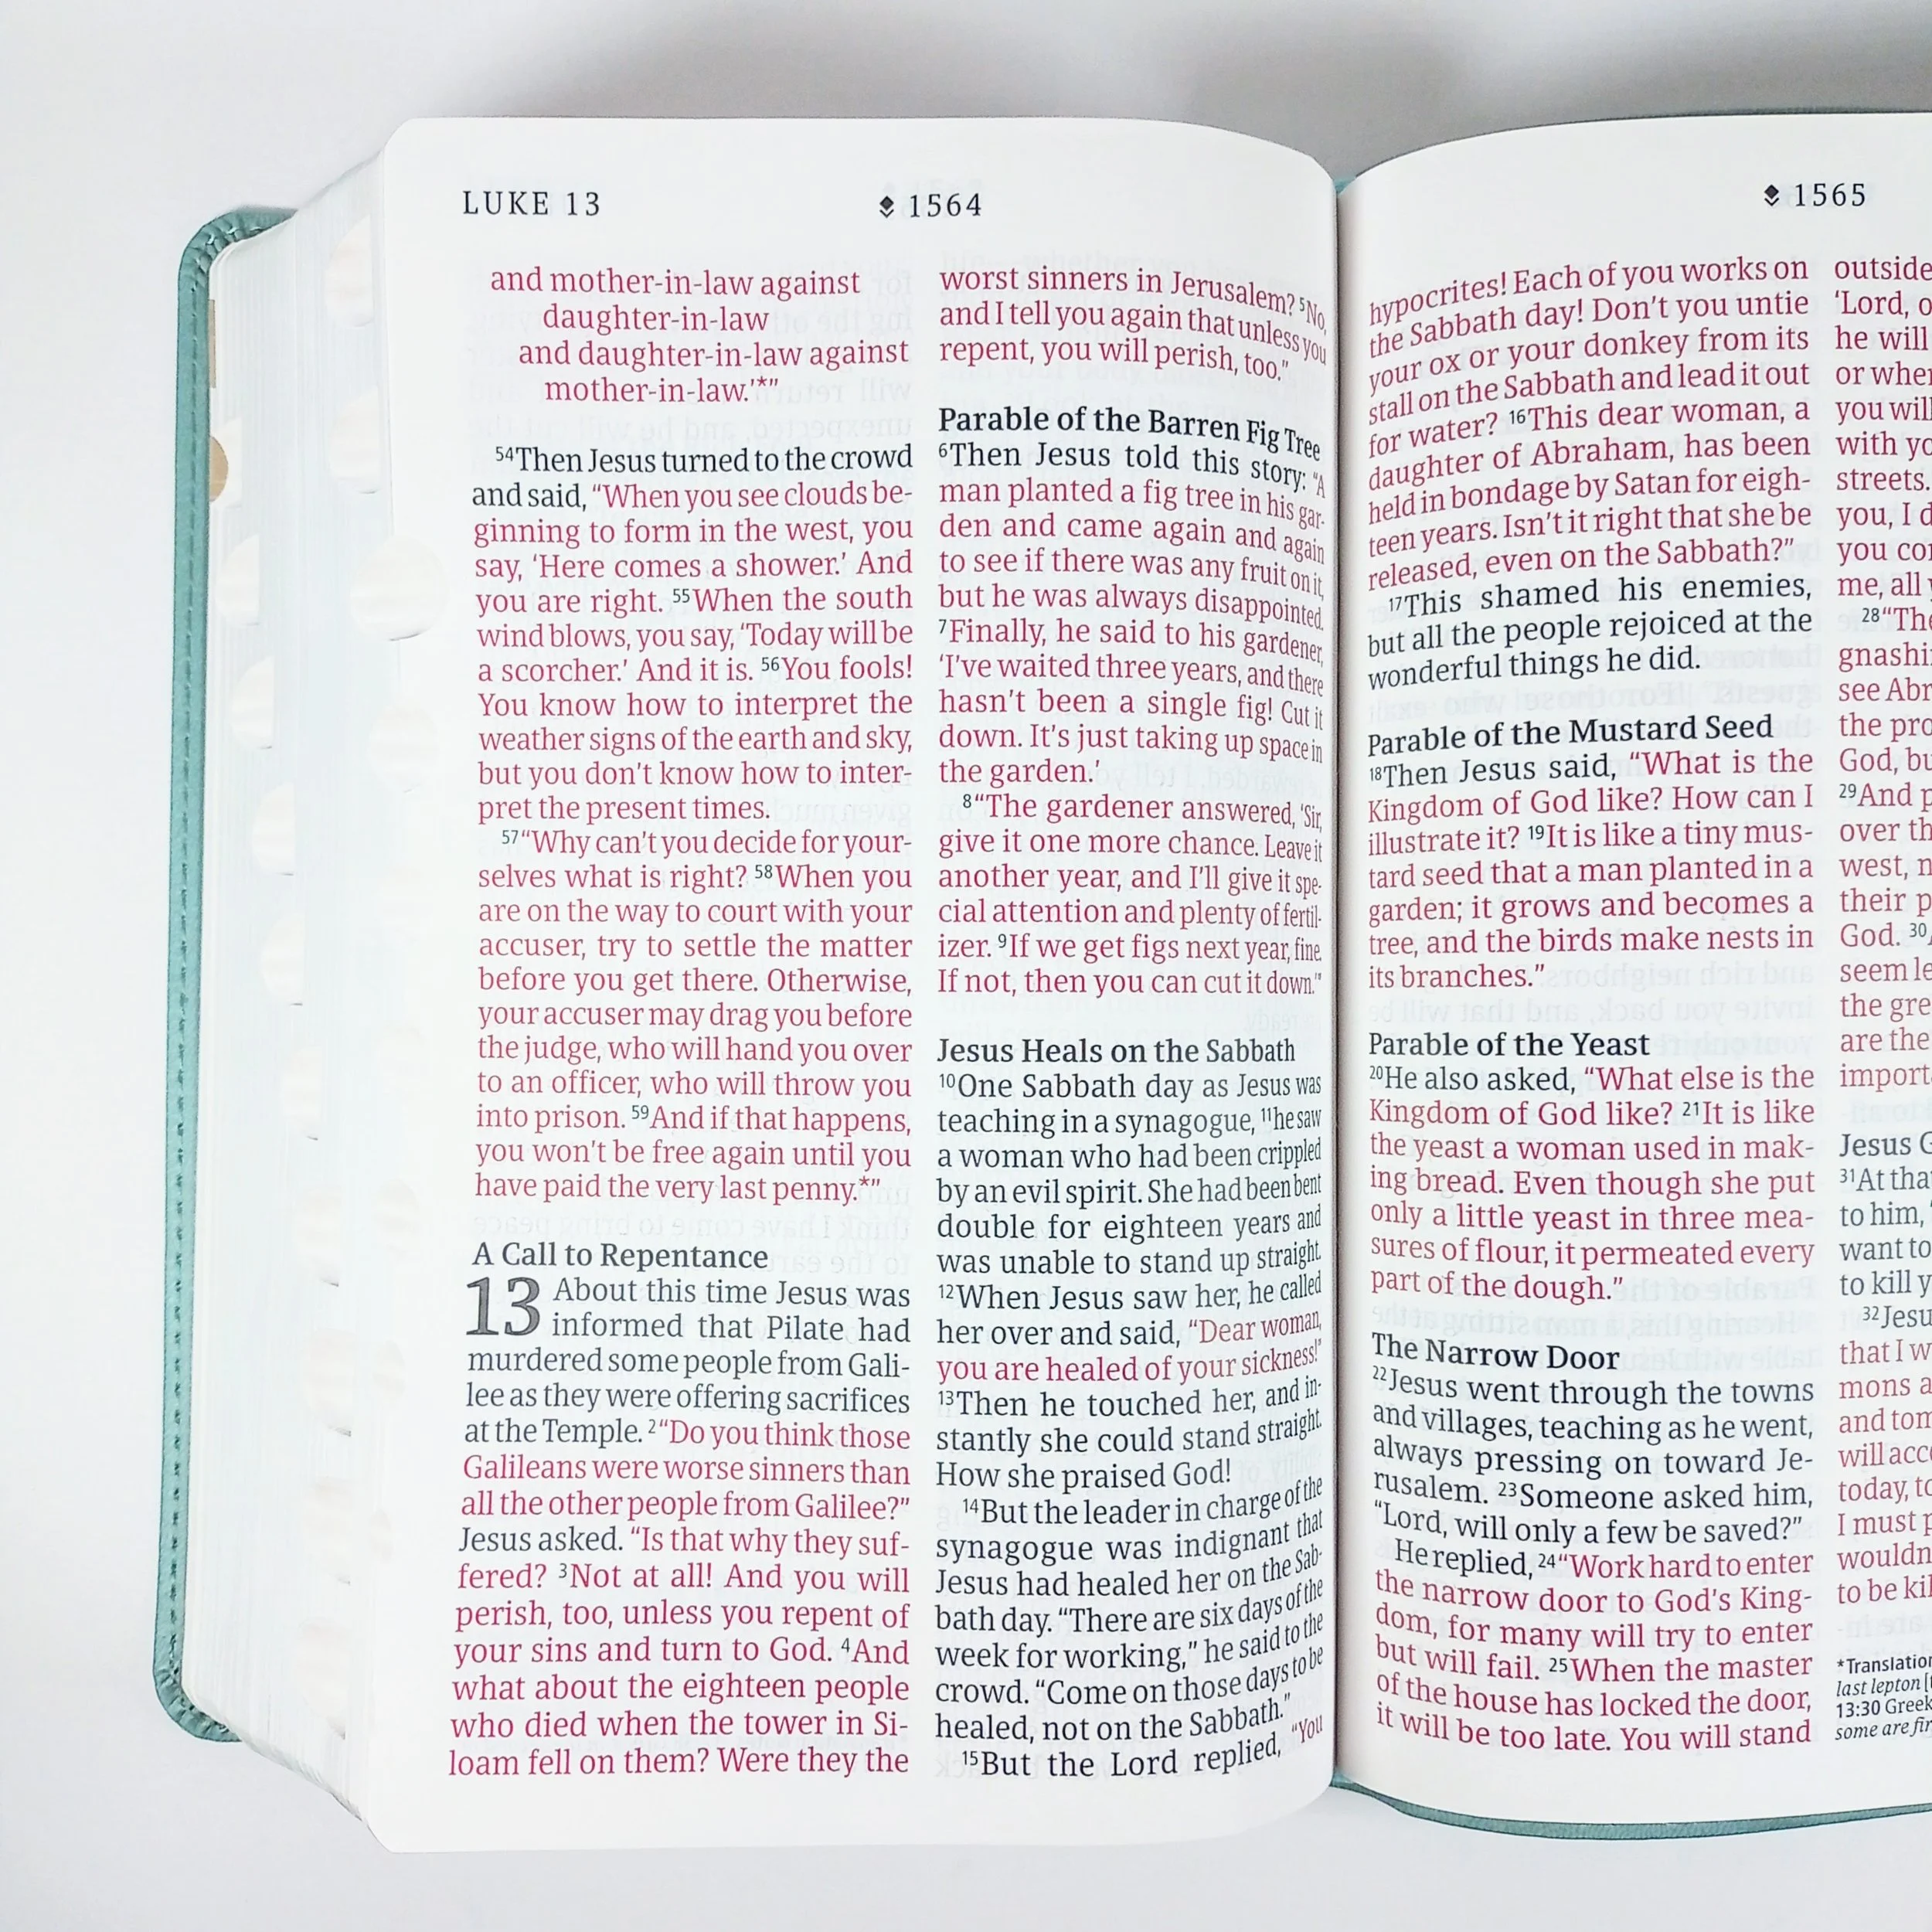 LUKE 13
1564
and mother-in-law against
daughter-in-law
and daughter-in-law against
mother-in-law.’*”
54Then Jesus turned to the crowd
and said, “When you see clouds be-
ginning to form in the west, you
say, ‘Here comes a shower.’ And
you are right. 55When the south
wind blows, you say, ‘Today will be
a scorcher.’ And it is. 56You fools!
You know how to interpret the
weather signs of the earth and sky,
but you don’t know how to inter-
pret the present times.
57“Why can’t you decide for your-
selves what is right? 58When you
are on the way to court with your
accuser, try to settle the matter
before you get there. Otherwise,
your accuser may drag you before
the judge, who will hand you over
to an officer, who will throw you
into prison. 59And if that happens,
you won’t be free again until you
have paid the very last penny.*”
A Call to Repentance
13 About this time Jesus was
informed that Pilate had
murdered some people from Gali-
lee as they were offering sacrifices
at the Temple. 2“Do you think those
Galileans were worse sinners than
all the other people from Galilee?”
Jesus asked. “Is that why they suf-
fered? 3Not at all! And you will
perish, too, unless you repent of
your sins and turn to God. 4And
what about the eighteen people
who died when the tower in Si-
loam fell on them? Were they the
worst sinners in Jerusalem? 5No,
and I tell you again that unless you
repent, you will perish, too.”
Parable of the Barren Fig Tree
6Then Jesus told this story: “A
man planted a fig tree in his gar-
den and came again and again
to see if there was any fruit on it,
but he was always disappointed.
7Finally, he said to his gardener,
‘I’ve waited three years, and there
hasn’t been a single fig! Cut it
down. It’s just taking up space in
the garden.’
8“The gardener answered, ‘Sir,
give it one more chance. Leave it
another year, and I’ll give it spe-
cial attention and plenty of fertil-
izer. 9If we get figs next year, fine.
If not, then you can cut it down.’”
Jesus Heals on the Sabbath
10One Sabbath day as Jesus was
teaching in a synagogue, 11he saw
a woman who had been crippled
by an evil spirit. She had been bent
double for eighteen years and
was unable to stand up straight.
12When Jesus saw her, he called
her over and said, “Dear woman,
you are healed of your sickness!”
13Then he touched her, and in-
stantly she could stand straight.
How she praised God!
14But the leader in charge of the
synagogue was indignant that
Jesus had healed her on the Sab-
bath day. “There are six days of the
week for working,” he said to the
crowd. “Come on those days to be
healed, not on the Sabbath.”
15But the Lord replied, “You
1565
hypocrites! Each of you works on
the Sabbath day! Don’t you untie
your ox or your donkey from its
stall on the Sabbath and lead it out
for water? 16This dear woman, a
daughter of Abraham, has been
held in bondage by Satan for eigh-
teen years. Isn’t it right that she be
released, even on the Sabbath?”
17This shamed his enemies,
but all the people rejoiced at the
wonderful things he did.
Parable of the Mustard Seed
18Then Jesus said, “What is the
Kingdom of God like? How can I
illustrate it? 19It is like a tiny mus-
tard seed that a man planted in a
garden; it grows and becomes a
tree, and the birds make nests in
its branches.”
Parable of the Yeast
20He also asked, “What else is the
Kingdom of God like? 21It is like
the yeast a woman used in mak-
ing bread. Even though she put
only a little yeast in three mea-
sures of flour, it permeated every
part of the dough.”
The Narrow Door
22Jesus went through the towns
and villages, teaching as he went,
always pressing on toward Je-
rusalem. 23Someone asked him,
“Lord, will only a few be saved?”
He replied, 24“Work hard to enter
the narrow door to God’s King-
dom, for many will try to enter
but will fail. 25When the master
of the house has locked the door,
it will be too late. You will stand
outside
‘Lord, o
he will
or wher
you will
with yo
streets.
you, I d
you con
me, all y
28“The
gnashi
see Abr
the pro
God, bu
29And p
over th
west, n
their p
God. 30
seem le
the gre
are the
import
Jesus G
31At tha
to him, “
want to
to kill y
32Jesu
that I w
mons a
and tom
will acc
today, to
I must p
wouldn
to be kil
*Translation
last lepton [t
13:30 Greek
some are fir